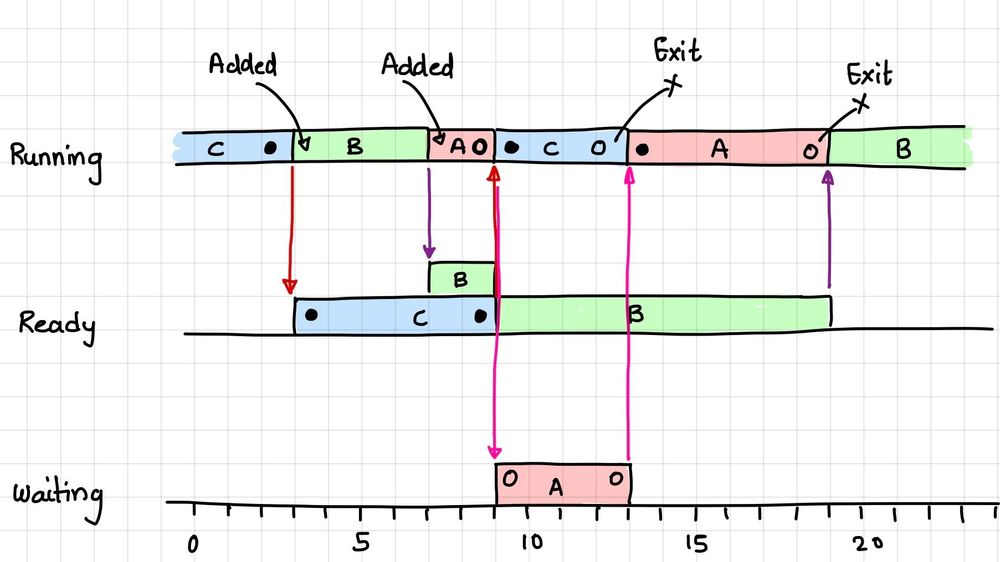 Added
Added
Exit
Exit
Running
C B A O C O A O B
B
Ready
C B
Waiting
O A O
0 5 10 15 20